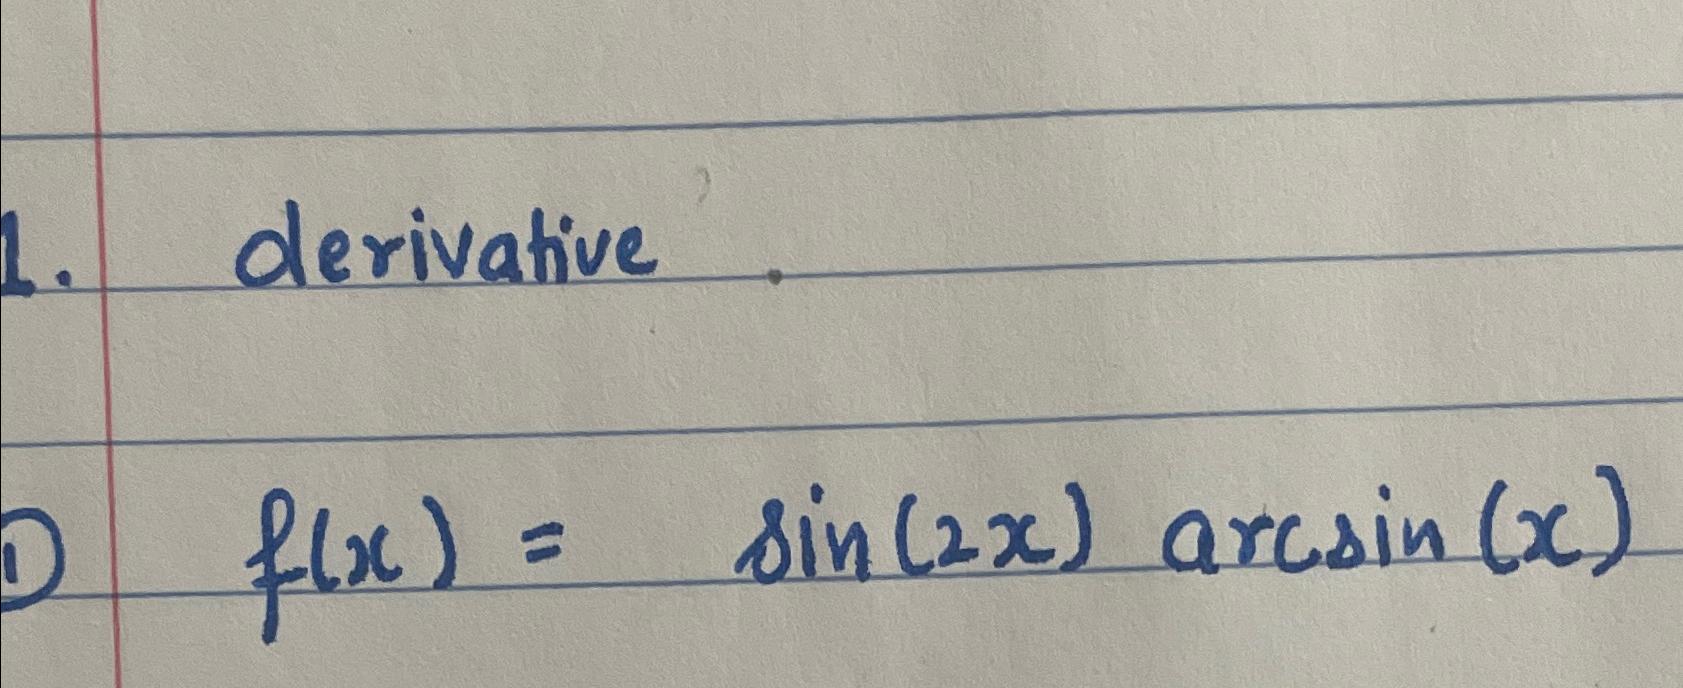 1. derivative
① f(x) = sin(2x) arcsin(x)